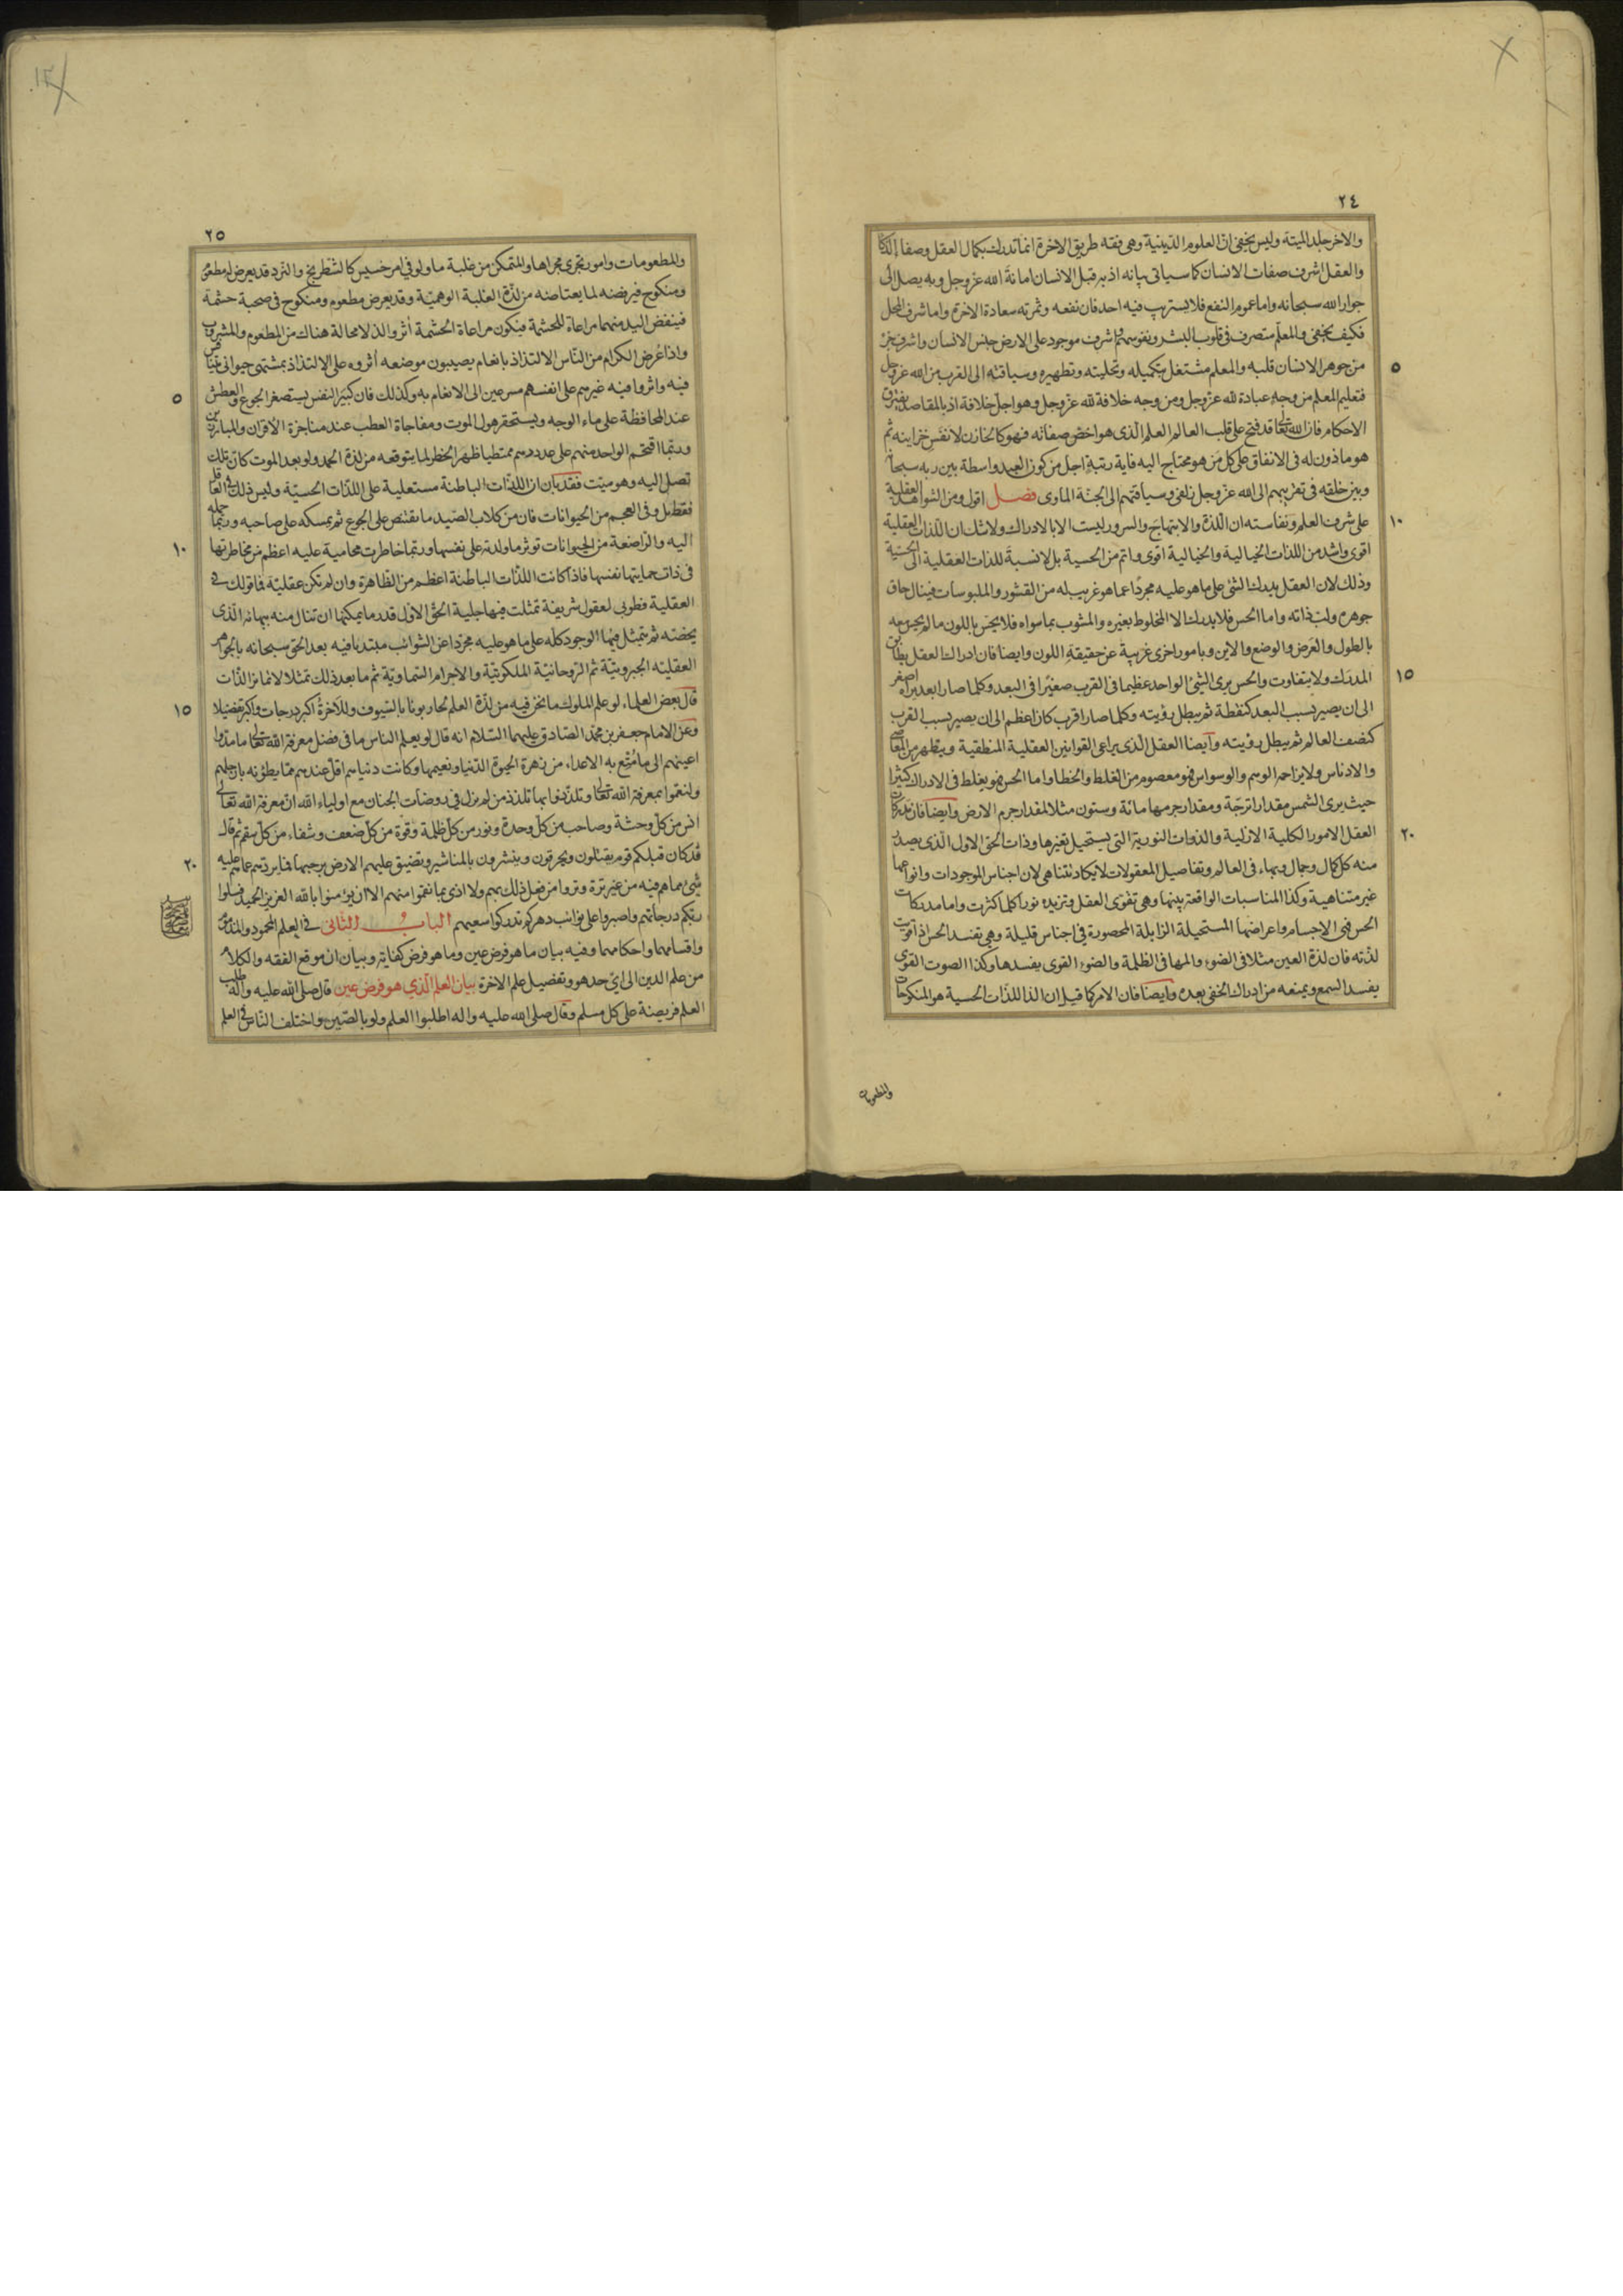 ٢٤
والاخر جلد الميتة وليس يخفى ان العلوم الدينية وهى فقه طريق الاخرة انما تدرك بكمال العقل وصفاء الذكا
والعقل اشرف صفات الانسان كما سياتى بيانه اذ به قبل الانسان امانة الله عز وجل وبه يصل الى
جوار الله سبحانه واما عموم النفع فلا يستريب فيه احد فان نفعه وثمرته سعادة الاخرة واما شرف المحل
فكيف يخفى والمعلم متصرف فى قلوب البشر ونفوسهم واشرف موجود على الارض جنس الانسان واشرف جزء
٥
من جوهر الانسان قلبه والمعلم مشتغل بتكميله وتحليته وتطهيره وسياقته الى القرب من الله عز وجل
فتعليم المعلم من وجه عبادة لله عز وجل ومن وجه خلافة لله عز وجل وهو اجل خلافة اذ بالمقاصد يفترق
الاحكام فان الله تعالى قد فتح على قلب العالم العلم الذى هو اخص صفاته فهو كالخازن لانفس خزاينه ثم
هو ماذون له فى الانفاق على كل من هو محتاج اليه فاية رتبة اجل من كون العبد واسطة بين ربه سبحانه
وبين خلقه فى تقريبهم الى الله عز وجل زلفى وسياقتهم الى الجنة الماوى فصل اقول ومن الشواهد العقلية
١٠
على شرف العلم ونفاسته ان اللذة والابتهاج والسرور ليست الا بالادراك ولا شك ان اللذات العقلية
اقوى واشد من اللذات الخيالية والخيالية اقوى واتم من الحسية بل لا نسبة للذات العقلية الى الحسية
وذلك لان العقل يدرك الشئ على ما هو عليه مجردا عما هو غريب له من القشور والملبوسات فينال حاق
جوهره ولب ذاته واما الحس فلا يدرك الا المخلوط بغيره والمشوب بما سواه فلا يحس باللون ما لم يحس معه
بالطول والعرض والوضع والاين وبامور اخرى غريبة عن حقيقة اللون وايضا فان ادراك العقل يطابق
١٥
المدرك ولا يتفاوت والحس يرى الشئ الواحد عظيما فى القرب صغيرا فى البعد وكلما صار ابعد يراه اصغر
الى ان يصير بسبب البعد كنقطة ثم يبطل رؤيته وكلما صار اقرب كان اعظم الى ان يصير بسبب القرب
كنصف العالم ثم يبطل رؤيته وايضا العقل الذى يراعى القوانين العقلية المنطقية ويتطهر من المعاصى
والادناس ولا يزاحم الوهم والوسواس فهو معصوم من الغلط والخطا واما الحس فهو يغلط فى الادراك كثيرا
حيث يرى الشمس مقدار اترجة ومقدار جرمها مائة وستون مثلا لمقدار جرم الارض وايضا فان مدركات
٢٠
العقل الامور الكلية الازلية والذوات النورية التى يستحيل تغيرها وذات الحق الاول الذى يصدر
منه كل كمال وجمال وبهاء فى العالم وتفاصيل المعقولات لا يكاد تتناهى لان اجناس الموجودات وانواعها
غير متناهية وكذا المناسبات الواقعة بينها وهى تقوى العقل وتزيده نورا كلما كثرت واما مدركات
الحس فهى الاجسام واعراضها المستحيلة الزايلة المحصورة فى اجناس قليلة وهى تفسد الحس اذا قويت
لذته فان لذة العين مثلا فى الضوء والمها فى الظلمة والضوء القوى يفسدها وكذا الصوت القوى
يفسد السمع ويمنعه من ادراك الخفى بعده وايضا فان الامر كما قيل ان الذ اللذات الحسية هو المنكوحات
والمطعومات
٢٥
والمطعومات وامور تجرى مجراها والمتمكن من غلبة ما ولو فى امر خسيس كالشطرنج والنرد قد يعرض له مطعوم
ومنكوح فيرفضه لما يعتاضه من لذة الغلبة الوهمية وقد يعرض مطعوم ومنكوح فى صحبة حشمة
فينفض اليد منهما مراعاة للحشمة فيكون مراعاة الحشمة اثر والذ لا محالة هناك من المطعوم والمشروب
واذا عرض الكرام من الناس الالتذاذ بانعام يصيبون موضعه اثروه على الالتذاذ بمشتهى حيوانى متنافس
٥
فيه واثروا فيه غيرهم على انفسهم مسرعين الى الانعام به وكذلك فان كبير النفس يستصغر الجوع والعطش
عند المحافظة على ماء الوجه ويستحقر هول الموت ومفاجاة العطب عند مناجزة الاقران والمبارزين
وربما اقتحم الواحد منهم على عدد دهم ممتطيا ظهر الخطر لما يتوقعه من لذة الحمد ولو بعد الموت كان تلك
تصل اليه وهو ميت فقد بان ان اللذات الباطنة مستعلية على اللذات الحسية وليس ذلك فى العاقل
فقط بل وفى العجم من الحيوانات فان من كلاب الصيد ما يقتنص على الجوع ثم يمسكه على صاحبه وربما حمله
١٠
اليه والراضعة من الحيوانات توثر ما ولدته على نفسها وربما خاطرت محامية عليه اعظم من مخاطرتها
فى ذات حمايتها نفسها فاذا كانت اللذات الباطنة اعظم من الظاهرة وان لم تكن عقلية فما قولك فى
العقلية فطوبى لعقول شريفة تمثلت فيها جلية الحق الاول قدر ما يمكنها ان تنال منه ببهائه الذى
يخصه ثم تمثل فيها الوجود كله على ما هو عليه مجردا عن الشوائب مبتدءا فيه بعد الحق سبحانه بالجواهر
العقلية الجبروتية ثم الروحانية الملكوتية والاجرام السماوية ثم ما بعد ذلك تمثلا لا تمايز الذات
١٥
قال بعض العلماء لو علم الملوك ما نحن فيه من لذة العلم لحاربونا بالسيوف وللاخرة اكبر درجات واكبر تفضيلا
وعن الامام جعفر بن محمد الصادق عليهما السلام انه قال لو يعلم الناس ما فى فضل معرفة الله تعالى ما مدوا
اعينهم الى ما متع به الاعداء من زهرة الحيوة الدنيا ونعيمها وكانت دنياهم اقل عندهم مما يطؤنه بارجلهم
ولنعموا بمعرفة الله تعالى وتلذذوا بها تلذذ من لم يزل فى روضات الجنان مع اولياء الله ان معرفة الله تعالى
انس من كل وحشة وصاحب من كل وحدة ونور من كل ظلمة وقوة من كل ضعف وشفاء من كل سقم ثم قال
٢٠
قد كان قبلكم قوم يقتلون ويحرقون وينشرون بالمناشير وتضيق عليهم الارض برحبها فما يردهم عما هم عليه
شئ مما هم فيه من غير ترة وتروا من فعل ذلك بهم ولا اذى بما نقموا منهم الا ان يؤمنوا بالله العزيز الحميد فسلوا
ربكم درجاتهم واصبروا على نوائب دهركم تدركوا سعيهم الباب الثانى فى العلم المحمود والمذموم
واقسامهما واحكامهما وفيه بيان ما هو فرض عين وما هو فرض كفاية وبيان ان موقع الفقه والكلام
من علم الدين الى اى حد هو وتفضيل علم الاخرة بيان العلم الذي هو فرض عين قال صلى الله عليه واله طلب
العلم فريضة على كل مسلم وقال صلى الله عليه واله اطلبوا العلم ولو بالصين واختلف الناس فى العلم